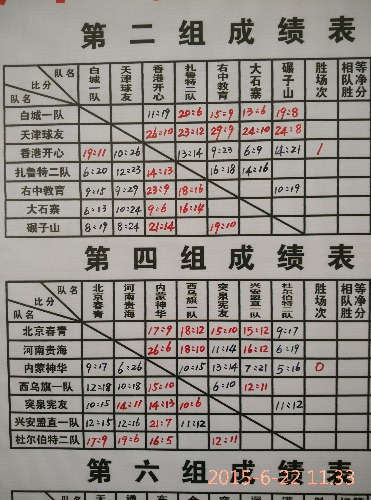 第二组成绩表
队名 比分 队名 白城一队 天津球友 香港开心 扎鲁特二队 右中教育 大石寨 碾子山 胜场次 相队胜 等净分
白城一队 11:19 20:6 15:9 13:6 19:8
天津球友 26:10 23:12 29:9 24:10 24:8
香港开心 19:11 10:26 13:14 9:23 6:9 14:21 1
扎鲁特二队 6:20 12:23 14:13 16:18 14:16
右中教育 9:15 9:29 23:9 18:16 10:19
大石寨 6:13 10:24 9:6 16:14
碾子山 8:19 8:24 21:14 19:10
第四组成绩表
队名 比分 队名 北京春青 河南贵海 内蒙神华 西乌旗一队 突泉宪友 兴安盟直一队 杜尔伯特二队 胜场次 相队胜 等净分
北京春青 17:9 18:12 15:10 15:12 9:17
河南贵海 26:6 18:10 11:14 16:12 6:19
内蒙神华 9:17 6:26 10:15 13:14 7:21 5:16 0
西乌旗一队 12:18 10:18 15:10 6:10 12:11
突泉宪友 10:15 14:11 14:13 10:6 11:12
兴安盟直一队 12:15 12:16 21:7 11:12
杜尔伯特二队 17:9 19:6 16:5 12:11
第六组成绩表
2015-6-22 11:33